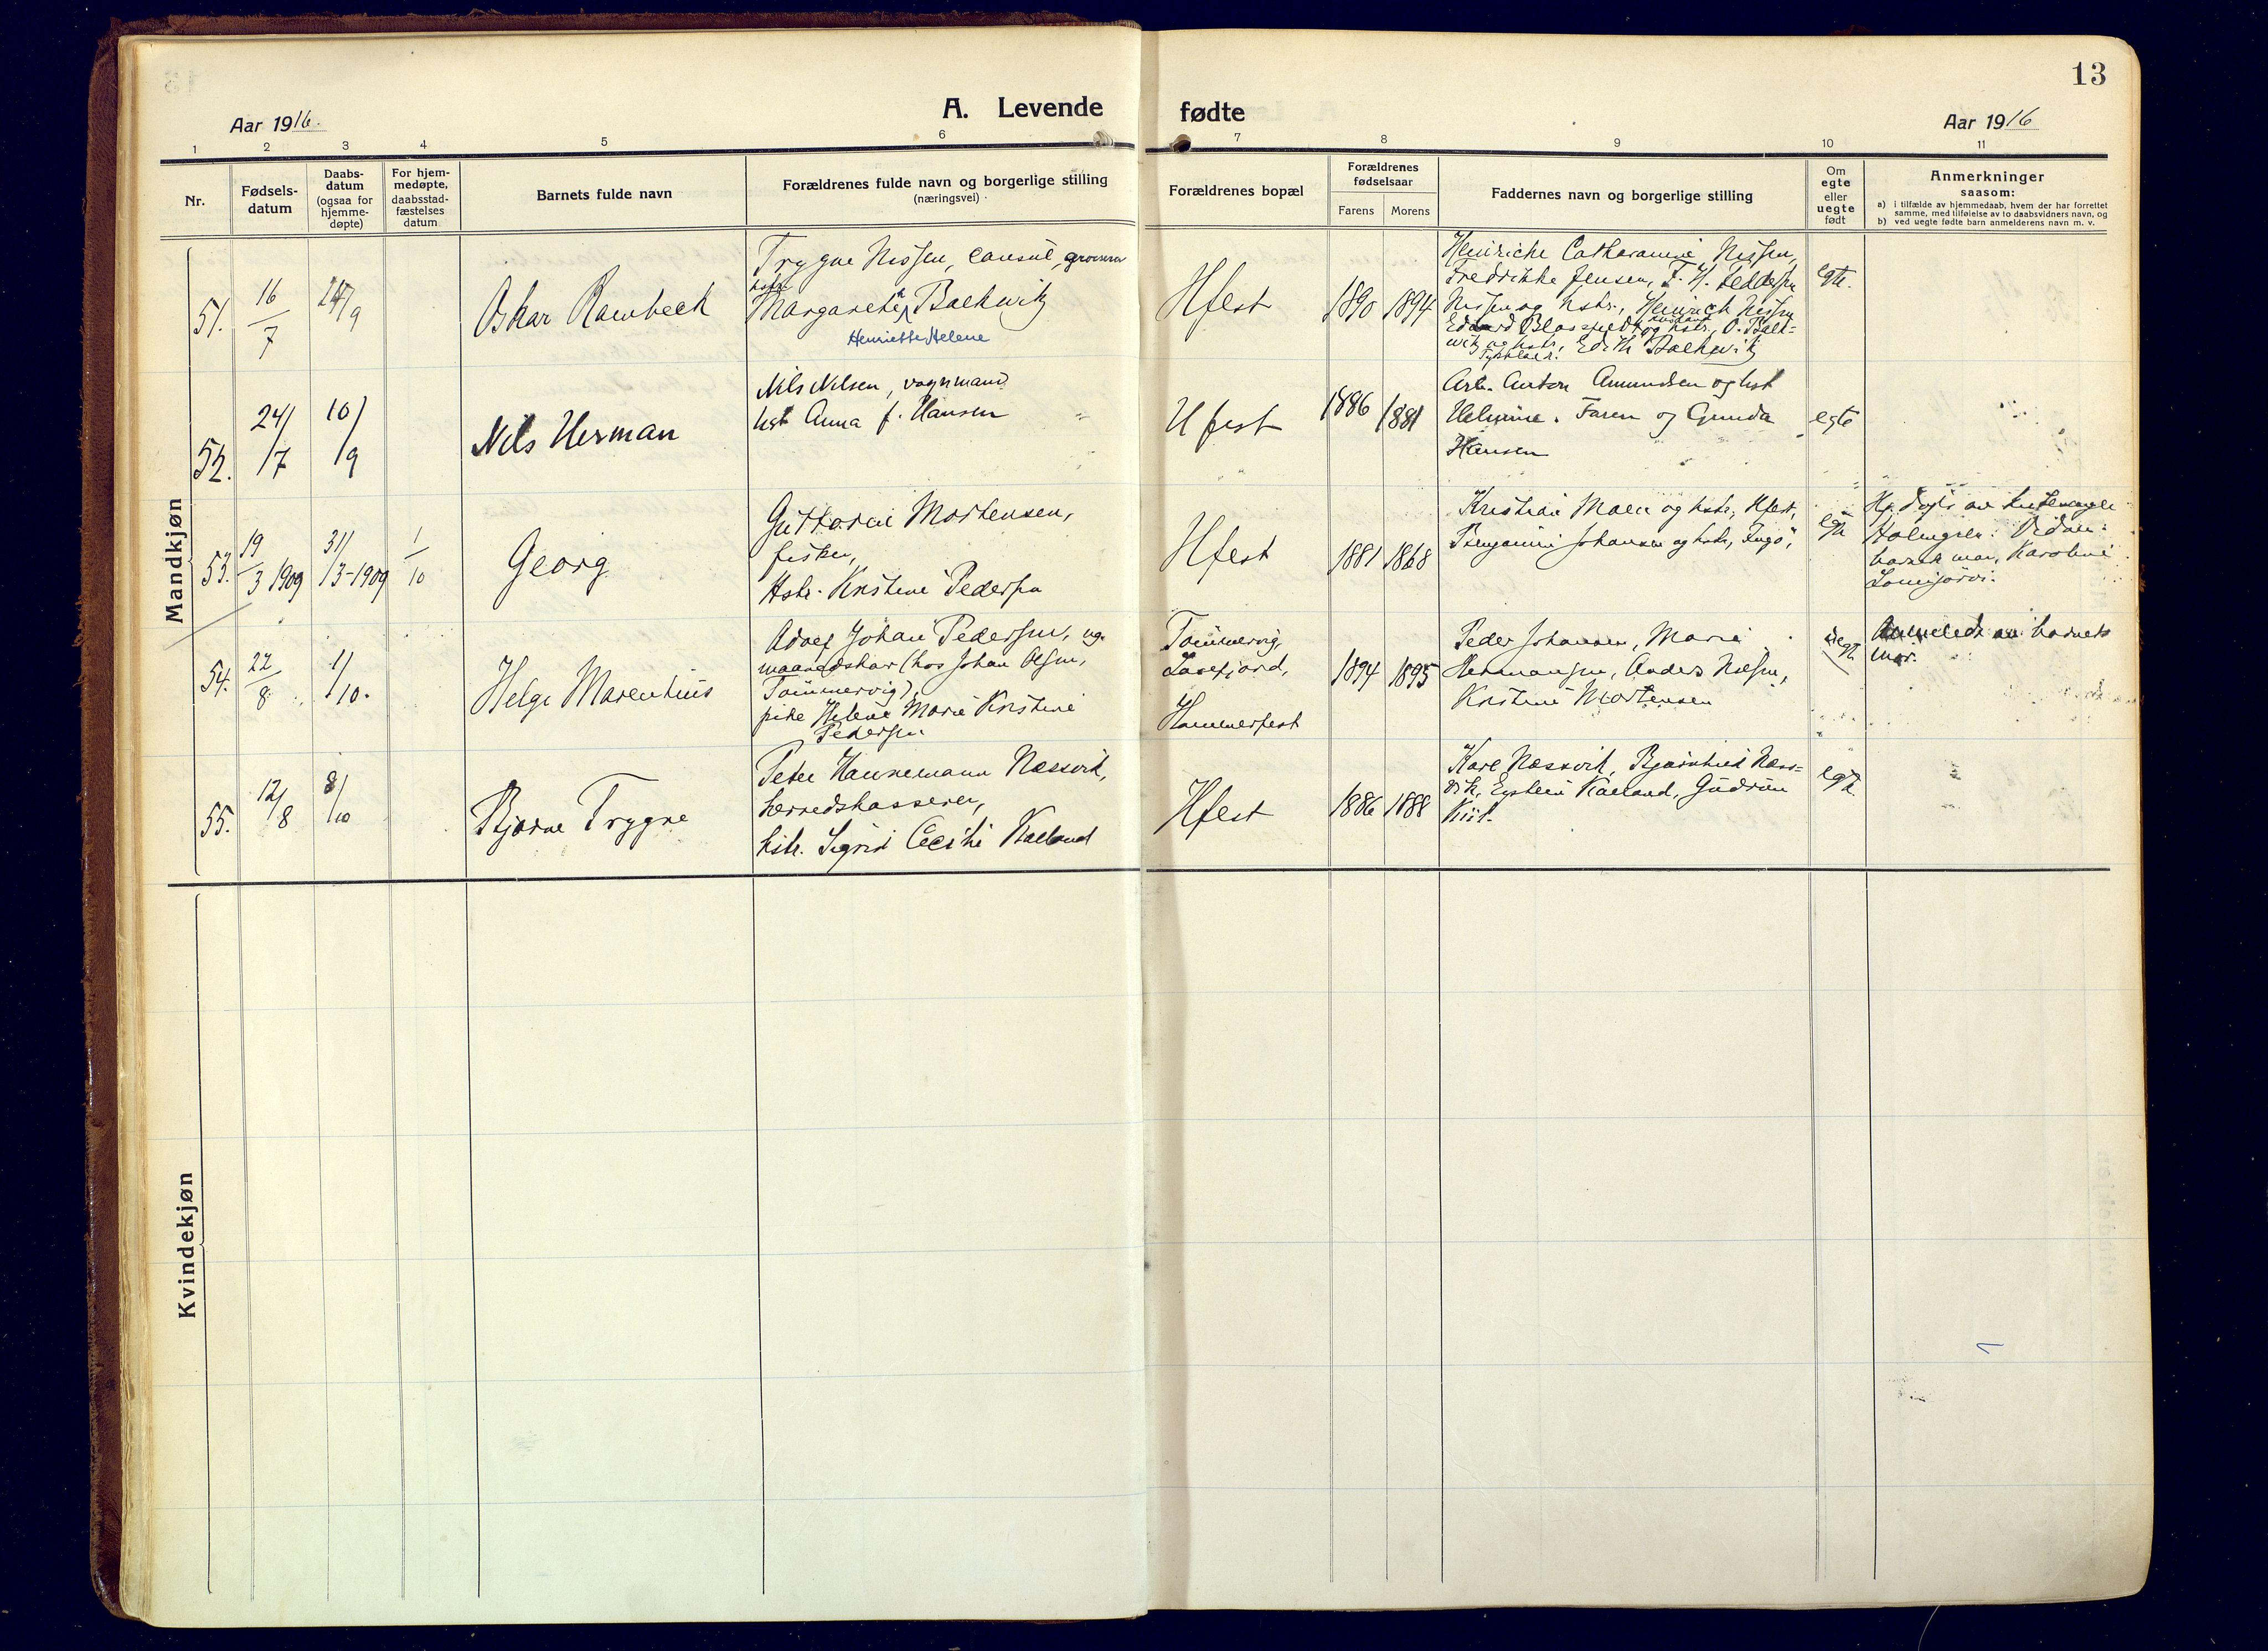 13
Aar 1916.
A. Levende
fødte
Aar 1916
1
2
3
4
5
6
7
8
9
10
11
Nr.
Fødsels-
datum
Daabs-
datum
(ogsaa for
hjemme-
døpte)
For hjem-
medøpte,
daabsstad-
fæstelses
datum
Barnets fulde navn
Forældrenes fulde navn og borgerlige stilling
(næringsvei)
Forældrenes bopæl
Forældrenes
fødselsaar
Farens
Morens
Faddernes navn og borgerlige stilling
Om
egte
eller
uegte
født
Anmerkninger
saasom:
a) i tilfælde av hjemmedaab, hvem der har forrettet
samme, med tilføielse av to daabsvidners navn, og
b) ved uegte fødte barn anmelderens navn m. v.
Mandkjøn
51.
16/7
24/9
Oskar Rambech
Trygve Nissen, consul, grosserer
hstr.
Margarethe Backwitz
Henriette Helene
Hfest
1890
1894
Heinriche Catharanine Nissen,
Fredrikke Jensen, F. H. Feddersen
Nissen og hstr., Heinrich Nissen
og hstr., O. Back-
witz og hstr., Edith Backwitz
egte.
52.
24/7
10/9
Nils Herman
Nils Nilsen, vognmand
hst Anna f. Hansen
Hfest
1886
1881
Arb. Anton Amundsen og hst
Helmine. Faren og Gunda
Hansen
egte
53.
19/3 1909
31/3-1909
1/10
Georg
Guttorm Mortensen,
fisker,
Hstr. Kristine Pedersen
Hfest
1881
1868
Kristian Moen og hstr, Hfest,
Benjamin Johansen og hstr, Ingø,
egte
Hj. døpt av
Holmgren. Vidn:
barnets mor, Karoline
Lomijørvi.
54.
22/8
1/10.
Helge Marenhius
Adolf Johan Pedersen, ug.
maanedskar (hos Johan Olsen,
Tømmervig),
pike Helene Marie Kristine
Pedersen
Tømmervig,
Hammerfest
1894
1895
Peder Johansen, Marie
Hermansen, Anders Nilsen,
Kristine Mortensen
uegte
Anmeldt av barnets
mor.
55.
12/8
8/10
Bjarne Trygve
Peter Hannemann Næssvik,
herredskasserer,
hstr. Sigrid Cecilie Kaeland
Hfest
1886
1888
Kare Næssvik, Bjarnhild Næss-
vik, Eystein Kaeland, Gudrun
Kiil.
egte
Kvindekjøn